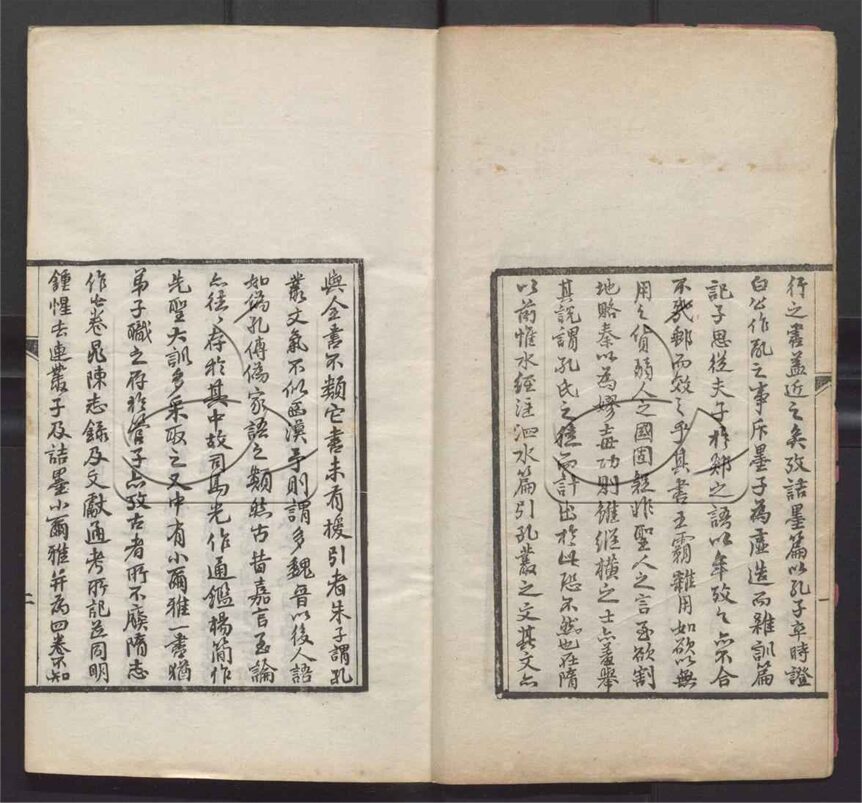 行之書蓋近之矣攷詰墨篇以孔子卒時證
白公作亂之事斥墨子為虛造而雜訓篇
記子思從夫子於郯之語以年攷之亦不合
不幾郵而效之乎其書王霸雜用如欲以無
用之貨弱人之國固疑非聖人之言至欲割
地賂秦以為嫪毐功則雖縱橫之士亦羞舉
其說謂孔氏之徒而計出於此恐不然也在隋
以前惟水經注泗水篇引孔叢之文其文亦
與全書不類它書未有援引者朱子謂孔
叢文氣不似西漢予則謂多魏晉以後人語
如偽孔傳偽家語之類然古昔嘉言至論
亦往〻存於其中故司馬光作通鑑楊簡作
先聖大訓多采取之又中有小爾雅一書猶
弟子職之存於管子亦攷古者所不廢隋志
作七卷晁陳志錄及文獻通考所記並同明
鍾惺去連叢子及詰墨小爾雅并為四卷不知
二